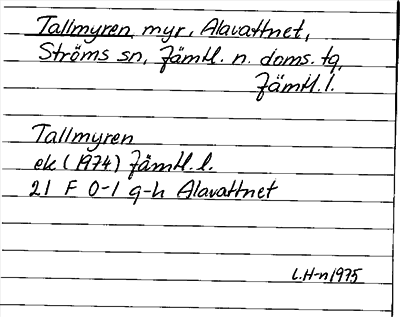 Tallmyren, myr, Alavattnet,
Ströms sn, Jämtl. n. doms. tg,
Jämtl. l.
Tallmyren
ek (1974) Jämtl. l.
21 F 0-1 g-h Alavattnet
L.H-n 1975